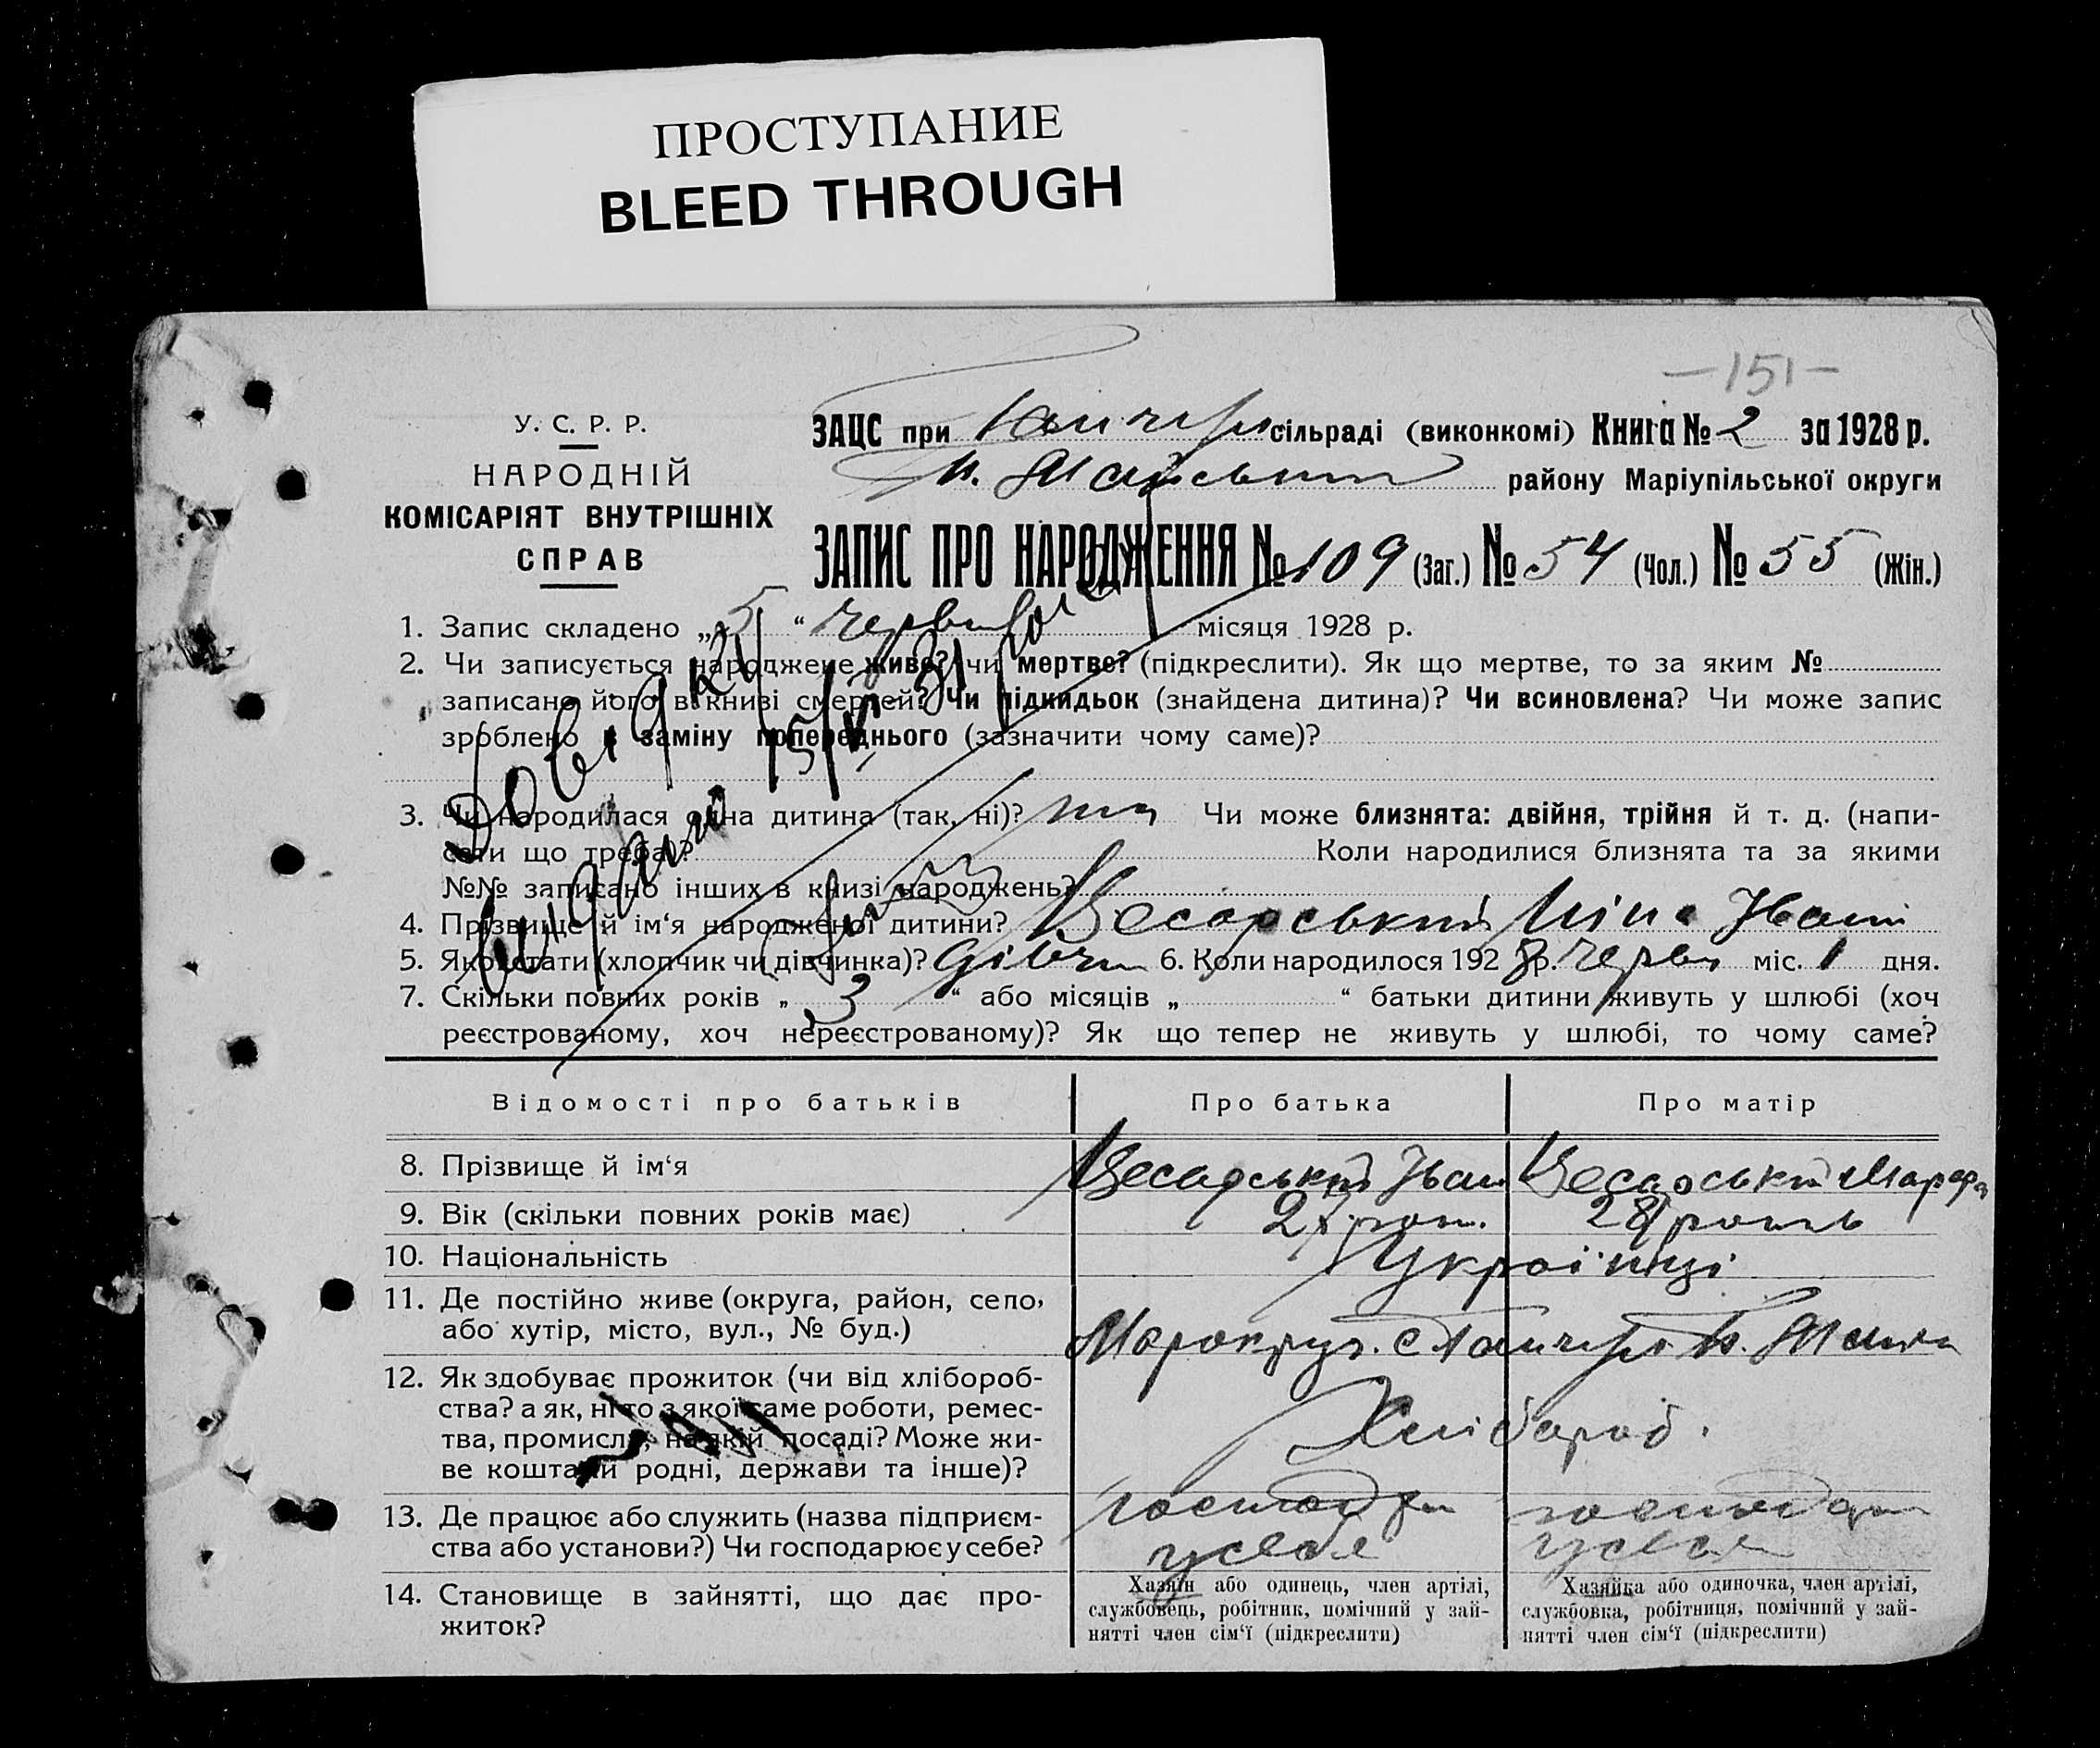 ПРОСТУПАНИЕ
BLEED THROUGH
—151—
У. С. Р. Р.
НАРОДНІЙ
КОМІСАРІЯТ ВНУТРІШНІХ
СПРАВ
ЗАЦС при сільраді (виконкомі) Книга № 2 за 1928 р.
району Маріупільської округи
ЗАПИС ПРО НАРОДЖЕННЯ № 109 (Заг.) № 54 (Чол.) № 55 (Жін.)
1. Запис складено „5“ червня місяця 1928 р.
2. Чи записується народжене живе? чи мертве? (підкреслити). Як що мертве, то за яким №
записано його в книзі смертей? Чи підкидьок (знайдена дитина)? Чи всиновлена? Чи може запис
зроблено в заміну попереднього (зазначити чому саме)?
Довідку
видано
3. Чи народилася одна дитина (так, ні)? Чи може близнята: двійня, трійня й т. д. (напи-
сати що треба)? Коли народилися близнята та за якими
№№ записано інших в книзі народжень?
4. Прізвище й ім‘я народженої дитини? Ніна Іван
5. Якої стати (хлопчик чи дівчинка)? дівчи 6. Коли народилося 1928 р. черв міс. 1 дня.
7. Скільки повних років „ 3 “ або місяців „ “ батьки дитини живуть у шлюбі (хоч
реєстрованому, хоч нереєстрованому)? Як що тепер не живуть у шлюбі, то чому саме?
Відомості про батьків Про батька Про матір
8. Прізвище й ім‘я Іван
9. Вік (скільки повних років має)
10. Національність Українці
11. Де постійно живе (округа, район, село,
або хутір, місто, вул., № буд.)
12. Як здобуває прожиток (чи від хлібороб-
ства? а як, ні то з якої саме роботи, ремес-
тва, промисла, на якій посаді? Може жи-
ве коштами родні, держави та інше)?
Хлібороб.
13. Де працює або служить (назва підприєм-
ства або установи?) Чи господарює у себе?
господар господар
у себе у себе
14. Становище в зайнятті, що дає про-
житок?
Хазяїн або одинець, член артілі,
службовець, робітник, помічний у зай-
нятті член сім‘ї (підкреслити)
Хазяйка або одиночка, член артілі,
службовка, робітниця, помічний у зай-
нятті член сім‘ї (підкреслити)